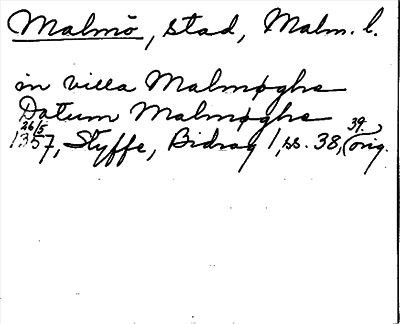 Malmö, stad, Malm. l.
in villa Malmøghe
Datum Malmøghe
26/5 1357, Styffe, Bidrag 1, ss. 38, 39. (orig.)